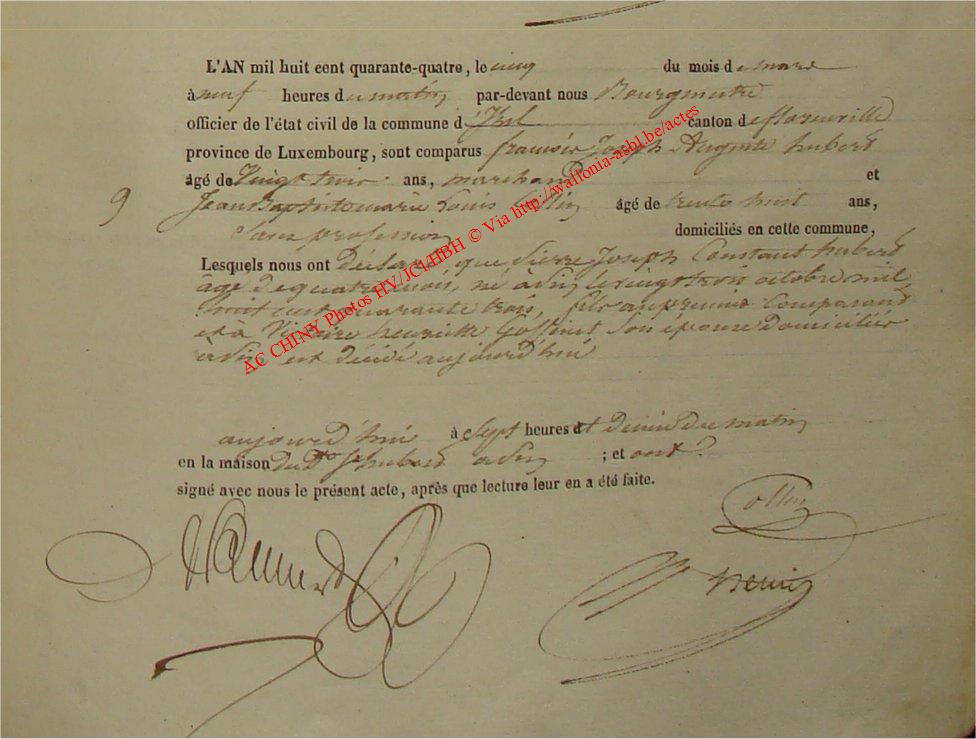 L'AN mil huit cent quarante-quatre, le cinq du mois de mars
à neuf heures du matin par-devant nous Bourgmestre
officier de l'état civil de la commune d'Izel canton de florenville
province de Luxembourg, sont comparus françois Joseph Auguste hubert
âgé de vingt trois ans, marchand et
9 Jean Baptiste marie Louis Collin âgé de trente huit ans,
sans profession domiciliés en cette commune,
Lesquels nous ont déclaré que Pierre Joseph Constant hubert
âgé de quatre mois, né à le vingt trois octobre mil
huit cent quarante trois, fils au premier Comparant
et à henriette Gossinet Son épouse domiciliés
est décédé aujourd'hui
aujourd'hui à Sept heures et demie du matin
en la maison du hubert ; et ont
signé avec nous le présent acte, après que lecture leur en a été faite.
Collin
AC CHINY Photos HV/JCl/HBH © Via http://wallonia-asbl.be/actes